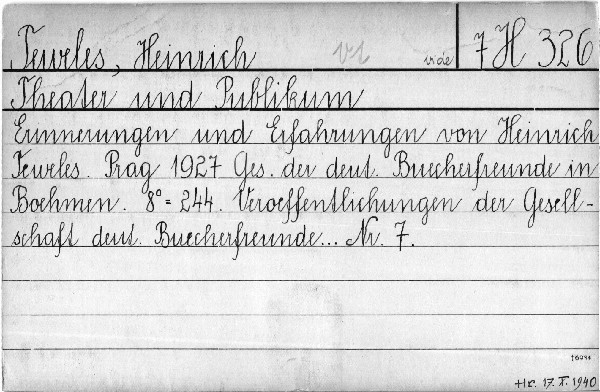 Teweles, Heinrich vide 7 H 326
Theater und Publikum
Erinnerungen und Erfahrungen von Heinrich
Teweles. Prag 1927 Ges. der deut. Buecherfreunde in
Boehmen. 8° = 244. Veroeffentlichungen der Gesell-
schaft deut. Buecherfreunde... Nr. 7.
Hr. 17. X. 1940